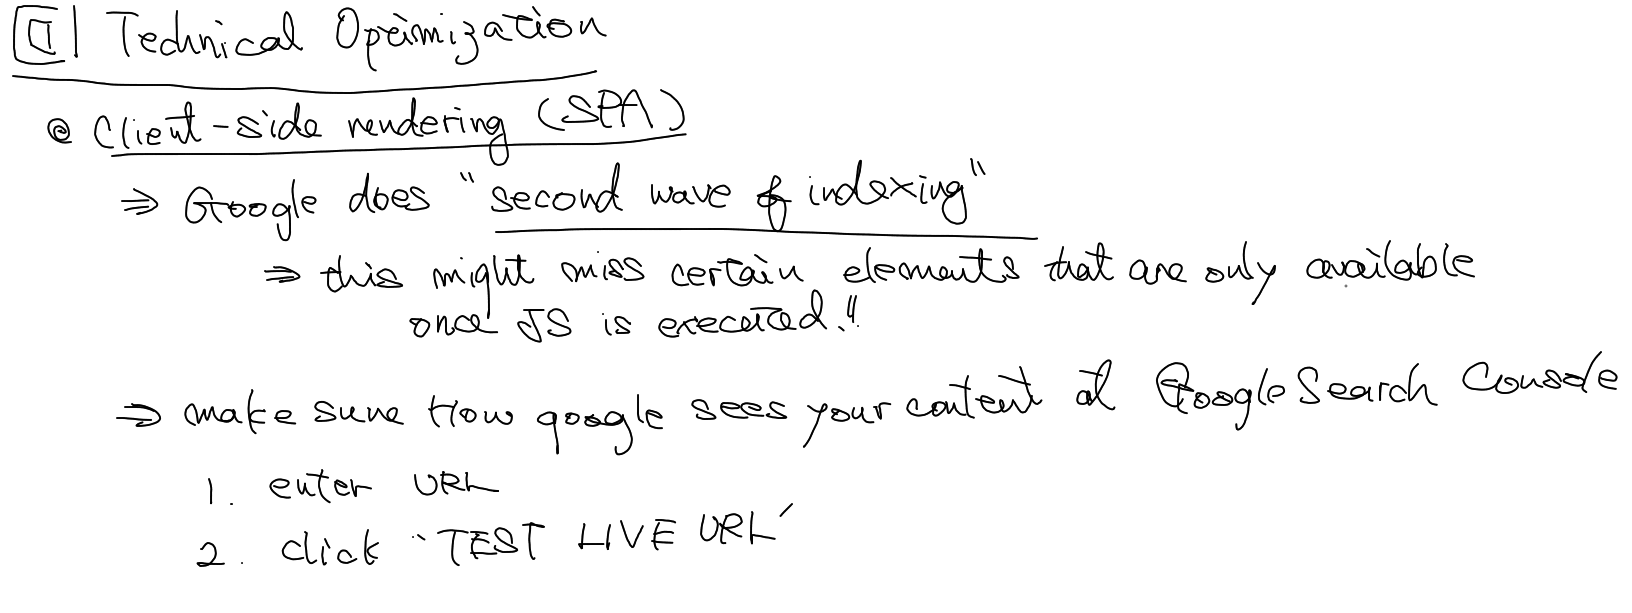 Technical Optimization
@ Client-side rendering (SPA)
⇒ Google does "second wave of indexing"
⇒ this might miss certain elements that are only available
once JS is executed.!!
⇒ make sure How google sees your content at Google Search Console
1. enter URL
2. click "TEST LIVE URL"